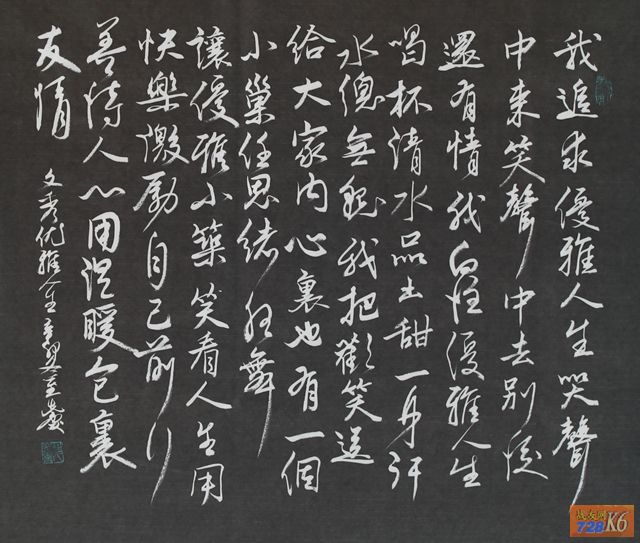 我追求優雅人生哭聲
中来笑聲中去別後
還有情我自恒優雅人生
喝杯清水品出甜一身汗
水總無愁我把歡笑送
給大家内心裏也有一個
小巢任思緒狂舞
讓優雅小築笑看人生用
快樂激勵自己前行
善待人心用温暖包裹
友情
文秀优雅人生
战友网
728K6